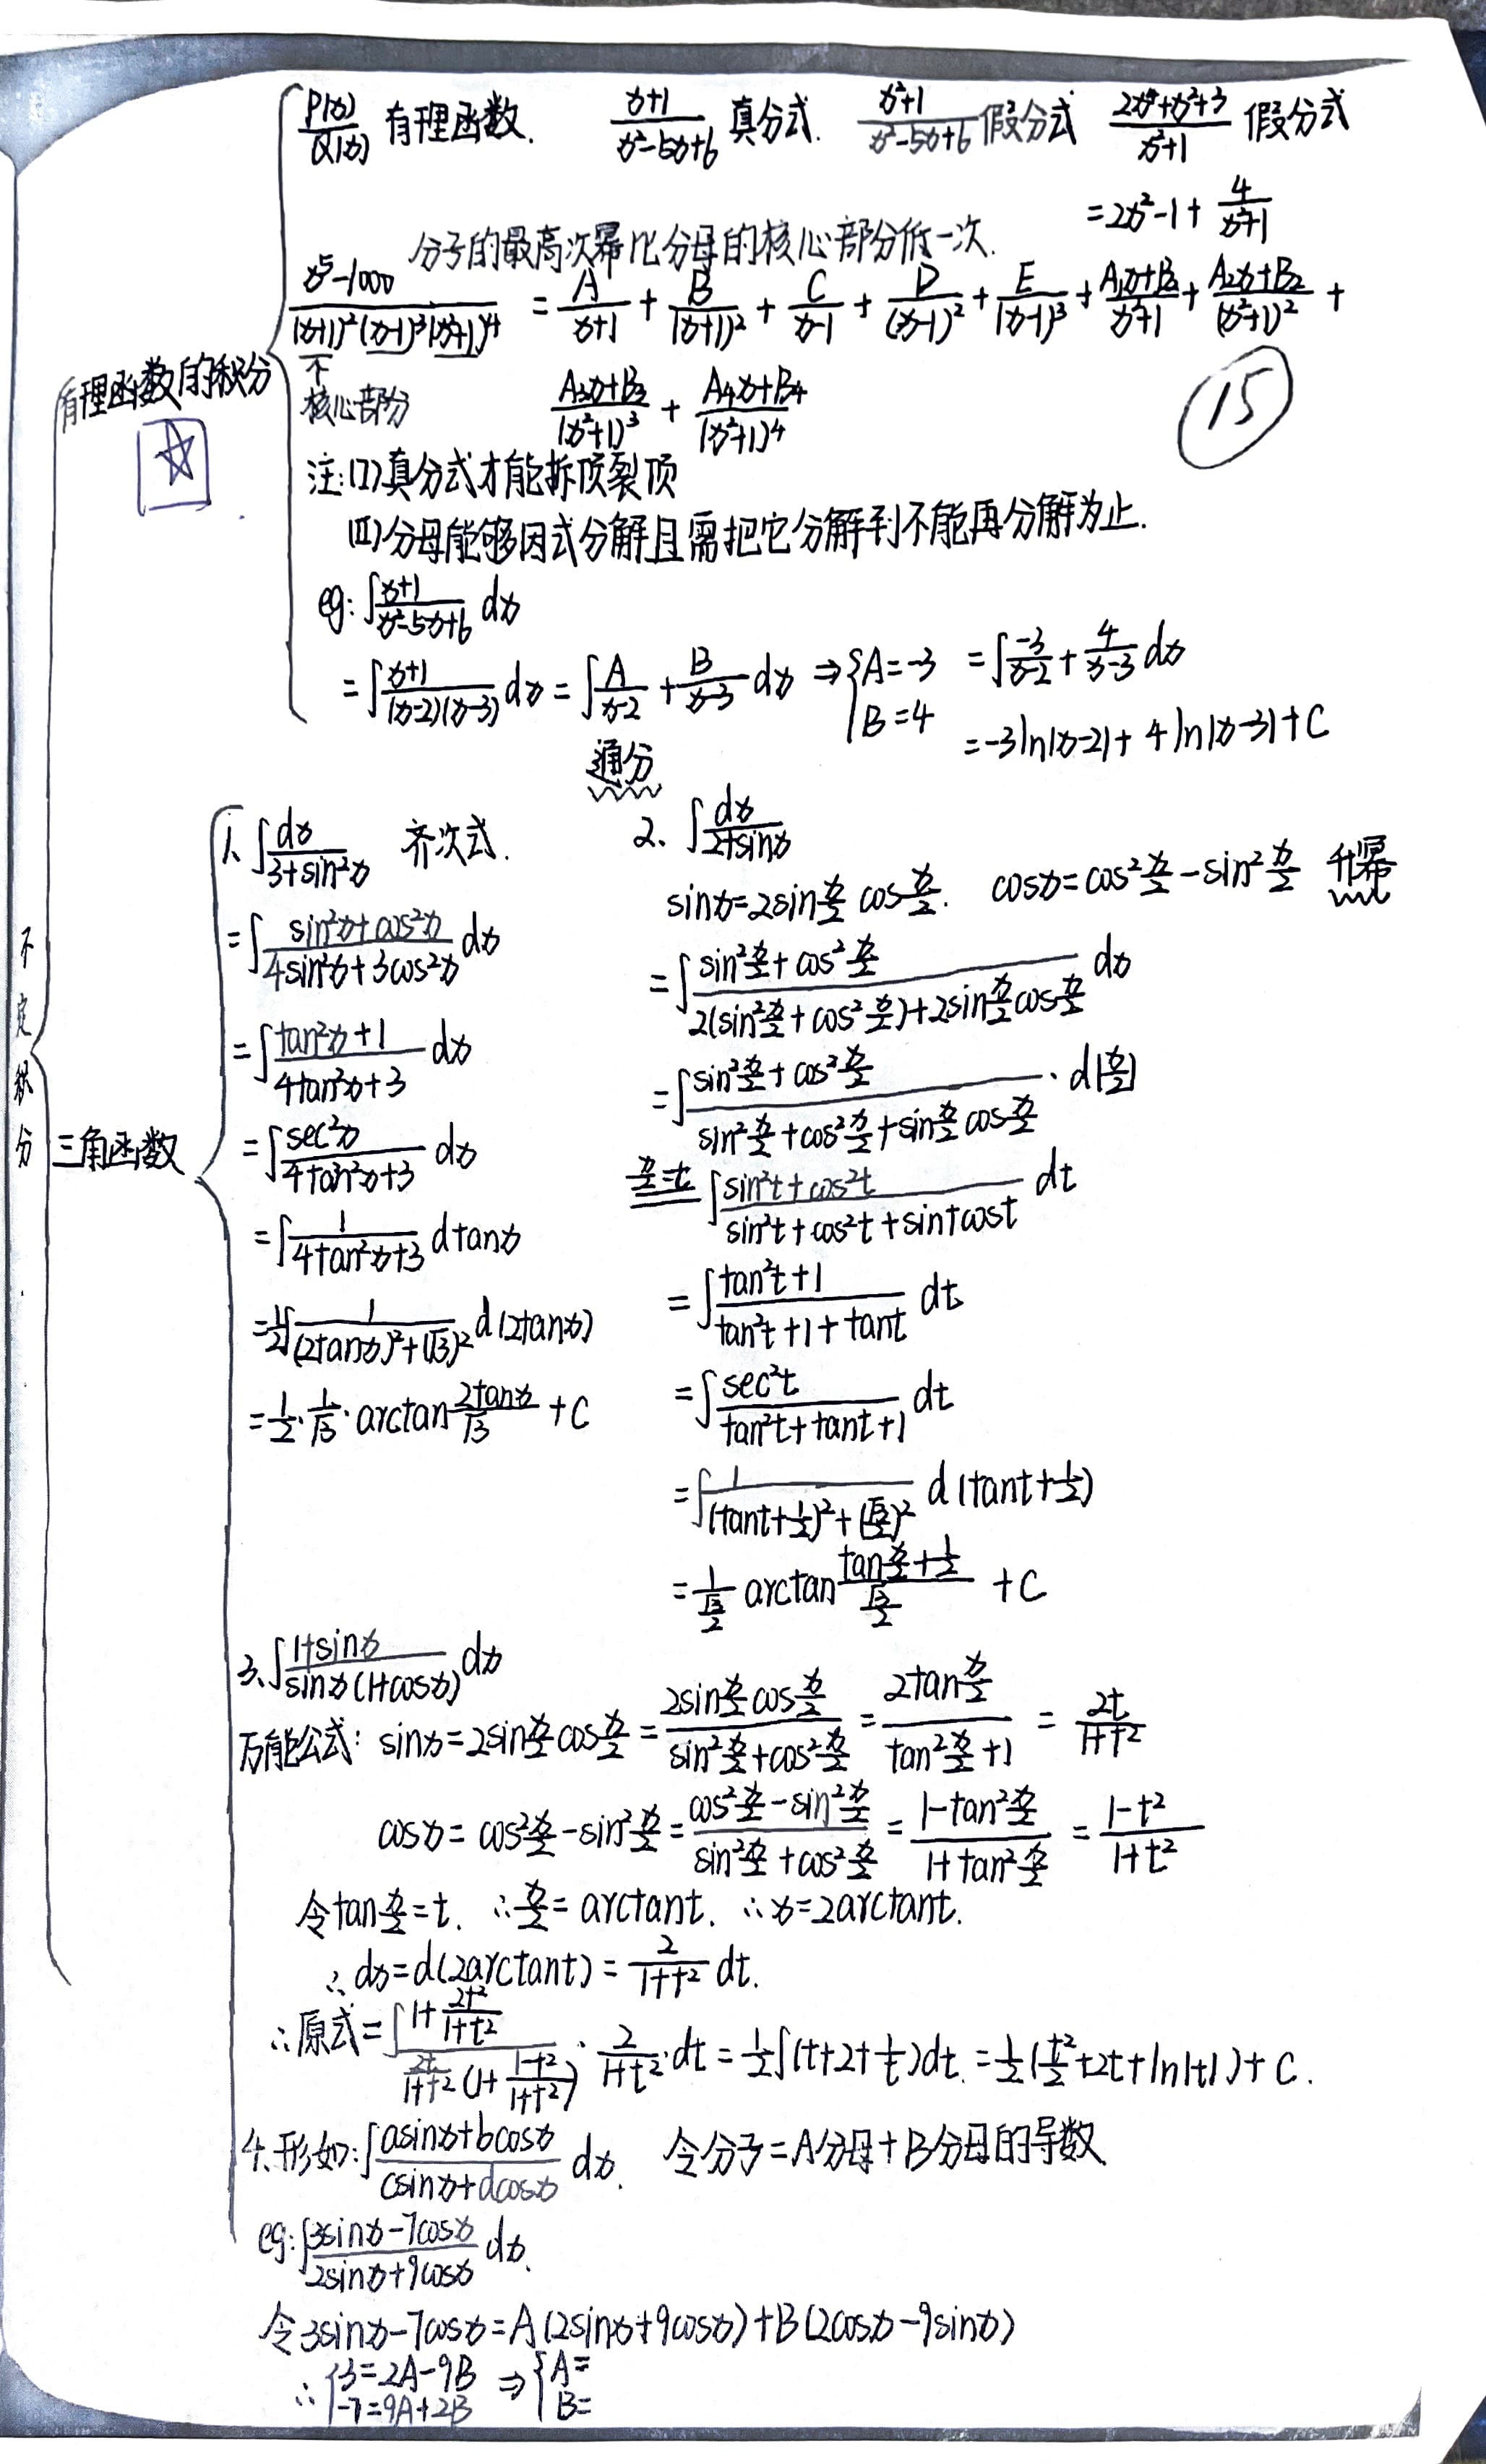 P(x)/Q(x) 有理函数. (x+1)/(x²-5x+6) 真分式. (x²+1)/(x²-5x+6) 假分式 (2x⁴+x²+3)/(x²+1) 假分式
=2x²-1+4/(x²+1)
分子的最高次幂比分母的核心部分低一次.
(x⁵-1000)/((x+1)²(x-1)³(x²+1)⁴) = A/(x+1) + B/(x+1)² + C/(x-1) + D/(x-1)² + E/(x-1)³ + (A₁x+B₁)/(x²+1) + (A₂x+B₂)/(x²+1)² +
有理函数的积分
核心部分 (A₃x+B₃)/(x²+1)³ + (A₄x+B₄)/(x²+1)⁴
15
注:(I)真分式才能拆项裂项
(II)分母能够因式分解且需把它分解到不能再分解为止.
eg: ∫(x+1)/(x²-5x+6) dx
=∫(x+1)/((x-2)(x-3)) dx = ∫A/(x-2) + B/(x-3) dx ⇒ {A=-3 B=4 =∫-3/(x-2) + 4/(x-3) dx
=-3ln|x-2|+4ln|x-3|+C
通分
不定积分
三角函数
1、∫dx/(3+sin²x) 齐次式.
=∫(sin²x+cos²x)/(4sin²x+3cos²x) dx
=∫(tan²x+1)/(4tan²x+3) dx
=∫sec²x/(4tan²x+3) dx
=∫1/(4tan²x+3) dtanx
=1/2∫1/((2tanx)²+(√3)²) d(2tanx)
=1/2·1/√3·arctan(2tanx/√3)+C
2、∫dx/(2+sinx)
sinx=2sin(x/2)cos(x/2). cosx=cos²(x/2)-sin²(x/2) 升幂
=∫(sin²(x/2)+cos²(x/2))/(2(sin²(x/2)+cos²(x/2))+2sin(x/2)cos(x/2)) dx
=∫(sin²(x/2)+cos²(x/2))/(sin²(x/2)+cos²(x/2)+sin(x/2)cos(x/2))·d(x/2)
x/2=t ∫(sin²t+cos²t)/(sin²t+cos²t+sintcost) dt
=∫(tan²t+1)/(tan²t+1+tant) dt
=∫sec²t/(tan²t+tant+1) dt
=∫1/((tant+1/2)²+(√3/2)²) d(tant+1/2)
=1/(√3/2) arctan((tan(x/2)+1/2)/(√3/2)) +C
3、∫(1+sinx)/(sinx(1+cosx)) dx
万能公式: sinx=2sin(x/2)cos(x/2)=2sin(x/2)cos(x/2)/(sin²(x/2)+cos²(x/2))=2tan(x/2)/(tan²(x/2)+1)=2t/(1+t²)
cosx=cos²(x/2)-sin²(x/2)=(cos²(x/2)-sin²(x/2))/(sin²(x/2)+cos²(x/2))=(1-tan²(x/2))/(1+tan²(x/2))=(1-t²)/(1+t²)
令tan(x/2)=t. ∴x/2=arctant. ∴x=2arctant.
∴dx=d(2arctant)=2/(1+t²) dt.
∴原式=∫(1+2t²/(1+t²))/(2t/(1+t²)(1+(1-t²)/(1+t²)))·2/(1+t²)·dt=1/2∫(t+2+1/t)dt.=1/2(t²/2+2t+ln|t|)+C.
4.形如:∫(asinx+bcosx)/(csinx+dcosx) dx. 令分子=A分母+B分母的导数
eg:∫(3sinx-7cosx)/(2sinx+9cosx) dx.
令3sinx-7cosx=A(2sinx+9cosx)+B(2cosx-9sinx)
∴{3=2A-9B ⇒{A=
-7=9A+2B B=